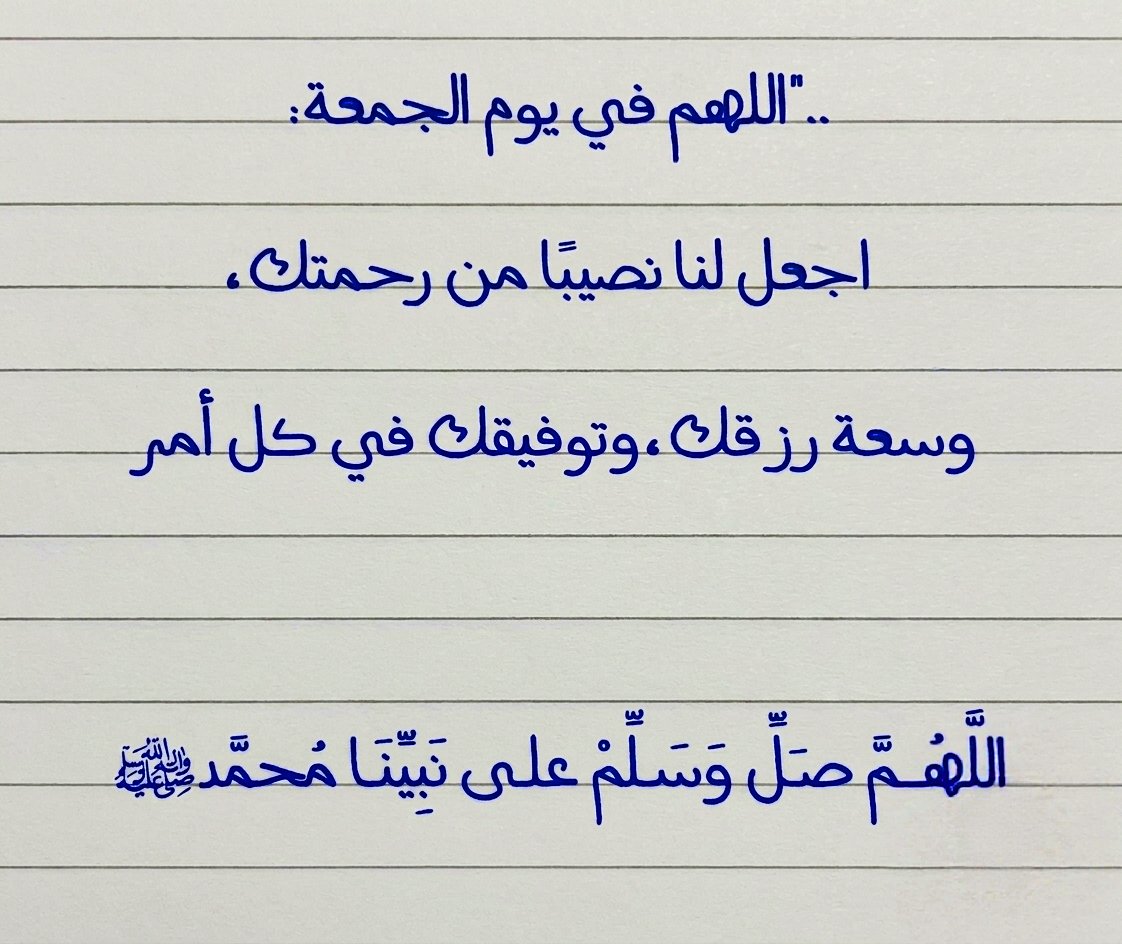 .."اللهم في يوم الجمعة:
اجعل لنا نصيبًا من رحمتك،
وسعة رزقك، وتوفيقك في كل أمر
اللَّهُـمَّ صَلِّ وَسَلِّمْ على نَبِيِّنَا مُحمَّد ﷺ